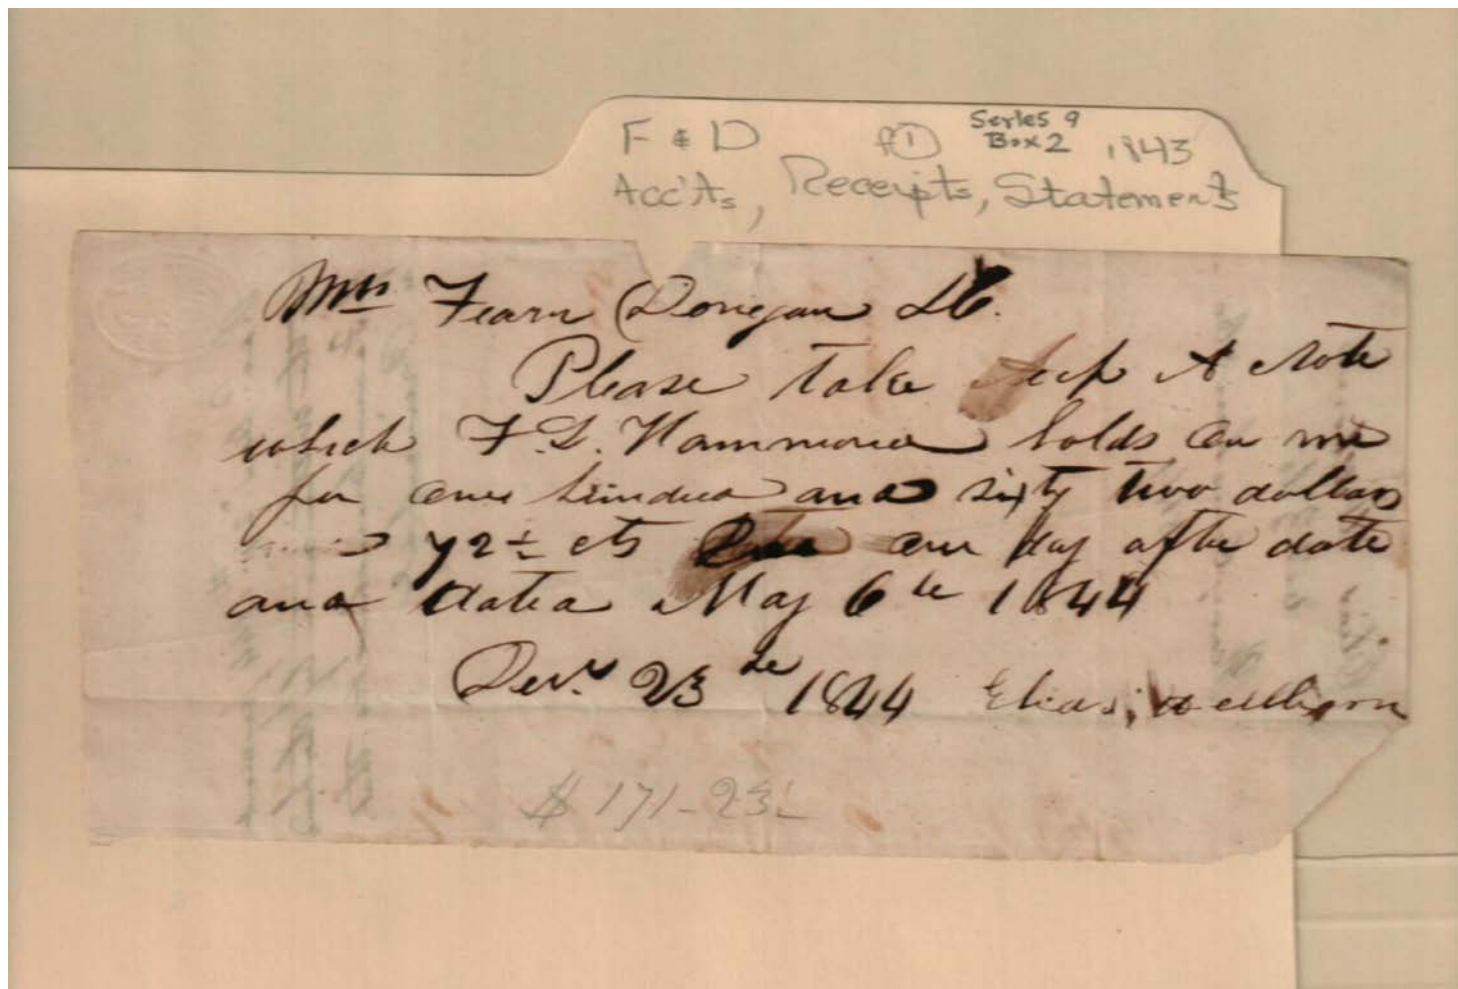 F & D f① Series 9
Box 2 1843
Acc'ts, Receipts, Statements
Mrs Fearn Donegan & Co.
Please take up A Note
which F. L. Hammond holds on me
for one hundred and sixty two dollars
72 cts Due one day after date
and dated May 6th 1844
Decr 23rd 1844 Elias
$171-23